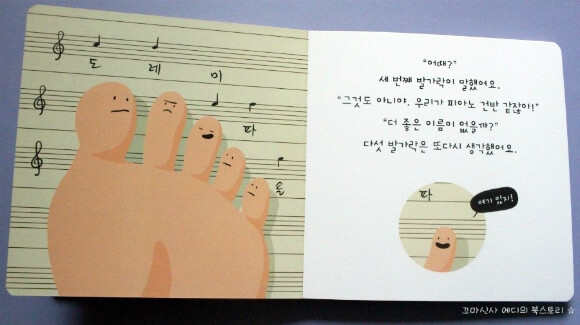 도 레 미
파
솔
"어때?"
세 번째 발가락이 말했어요.
"그것도 아니야. 우리가 피아노 건반 같잖아!"
"더 좋은 이름이 없을까?"
다섯 발가락은 또다시 생각했어요.
파
여기 있지!
꼬마신사 에디의 북스토리 ☆